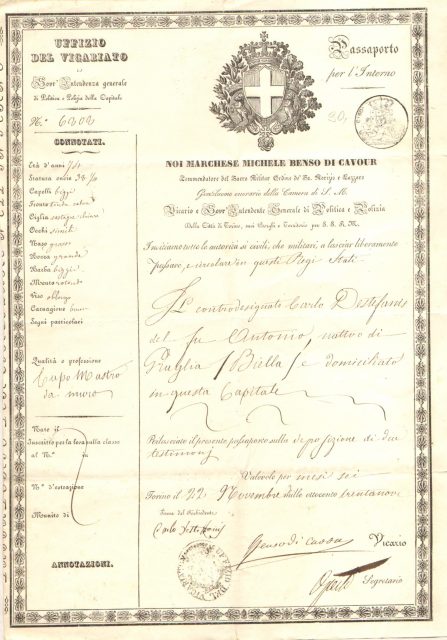 UFFIZIO
DEL VICARIATO
Gove Intendenza generale
di Politica e Polizia della Capitale
N.° 6202
CONNOTATI.
Età d'anni
Statura oncie
Capelli bigi
Fronte
Ciglia castagne chiare
Occhi simili
Naso grosso
Bocca grande
Barba bigia
Mento rotondo
Viso oblungo
Carnagione
Segni particolari
Qualità o professione
Capo Mastro
da muro
Nato il
Inscritto per la leva sulla classe
al N.° in
N.° d'estrazione
Munito di
ANNOTAZIONI.
Passaporto
per l'Interno
NOI MARCHESE MICHELE BENSO DI CAVOUR
Commendatore del Sacro Militar Ordine de' Ss. Morizio e Lazzaro
Gentiluomo onorario della Camera di S. M.
Vicario e Sovr' Intendente Generale di Politica e Polizia
Della Città di Torino, suoi Borghi e Territorio per S. S. R. M.
Invitiamo tutte le autorità sì civili, che militari, a lasciar liberamente
passare, e circolare in questi Regi Stati
Il controdesignato Carlo Distefanis
del fu Antonio, nativo di
Graglia (Biella) e domiciliato
in questa Capitale
Rilasciato il presente passaporto sulla deposizione di due
testimonj
Valevole per mesi sei
Torino il 22 Novembre mille ottocento trentanove
Firma del Richiedente
Benso di Cavour Vicario
Segretario